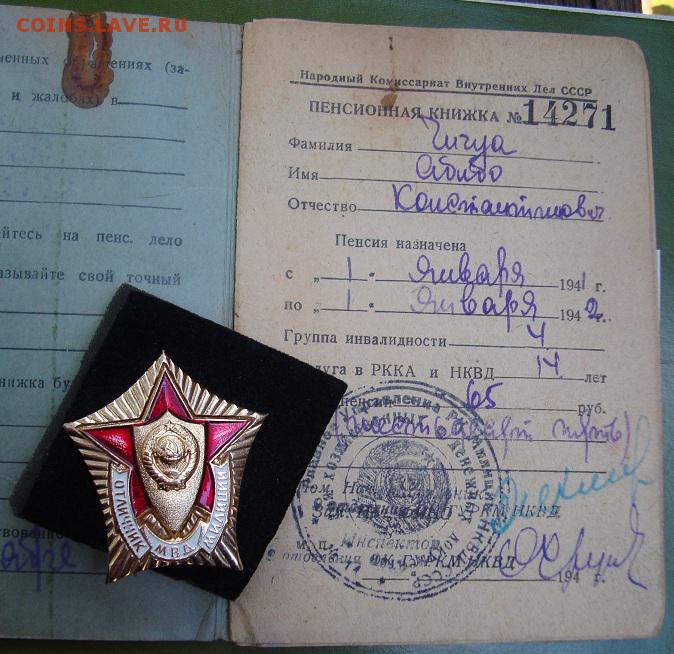 COINS.LAVE.RU
менных обращениях (за-
и жалобах) в
йтесь на пенс. дело
азывайте свой точный
нижка бу
1
Народный Комиссариат Внутренних Дел СССР
ПЕНСИОННАЯ КНИЖКА № 14271
Фамилия Чичуа
Имя
Отчество Константинович
Пенсия назначена
с „ 1 “ января 1941 г.
по „ 1 “ января 1942 г.
Группа инвалидности
луга в РККА и НКВД 14 лет
пенсии 65 руб.
(шестьдесят пять)
ГУРКМ НКВД
М. П. Инспектор
отделения ГУРКМ НКВД
194 г.
ОТЛИЧНИК МВД МИЛИЦИИ